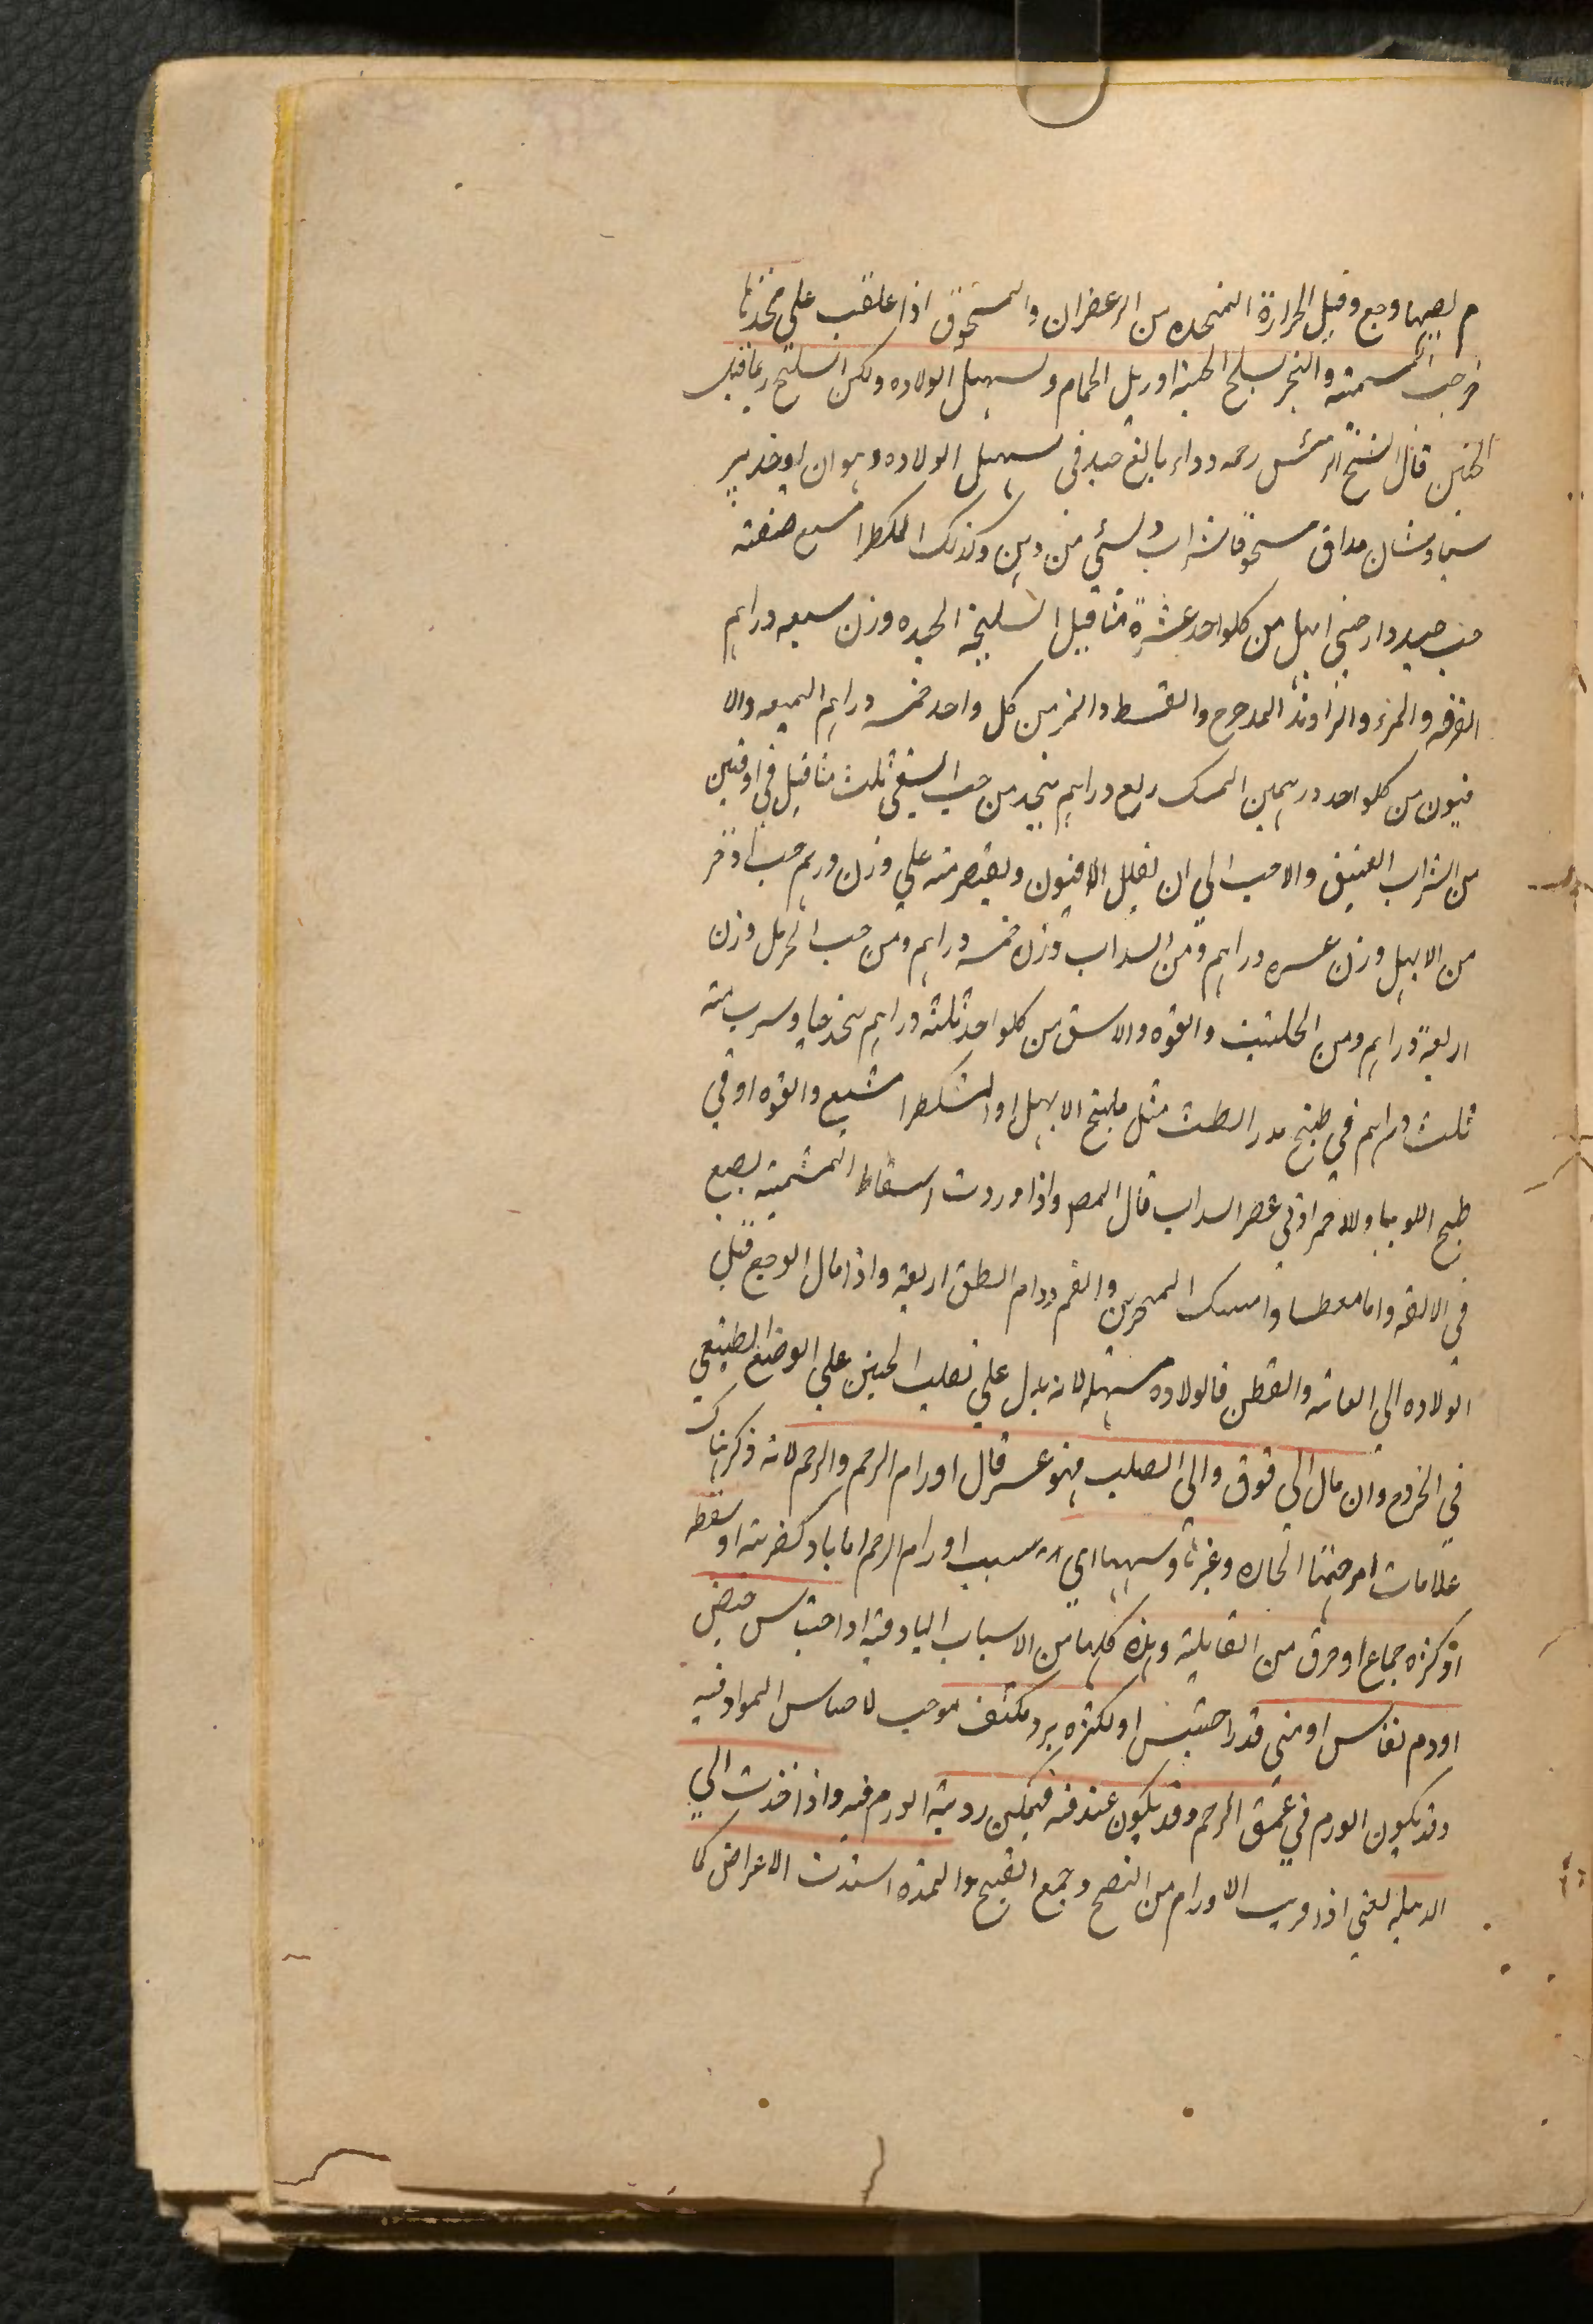 م يصبها وجع وقيل الحرارة المتخده من الزعفران والمسحوق اذا علقت على فخذها
خرجت المشيمة والتبخر بسلخ الحية او زبل الحمام وتسهيل الولاده ولكن السلخ ربما قتل
الجنين قال الشيخ الرئيس رحمه دواء بالغ جيد في تسهيل الولاده وهو ان يوخذ پر
سياوشان مداق مسحوقا شراب وشئ من دهن وكذلك المكطرا مسيع صنعته
حب جيد دارصيني ابهل من كلواحد عشرة مثاقيل السليخة الجيده وزن سبعه دراهم
القرفه والمر والزراوند المدحرج والقسط والمر من كل واحد خمسه دراهم الميعه والا
فيون من كلواحد درهمين المسك ربع دراهم يتخد من حب السقي ثلث مثاقيل في اوقتين
من الشراب العتيق والاحب الي ان تقلل الافيون ويقتصر منه علي وزن درهم حب اخر
من الابهل وزن عسره دراهم ومن السداب وزن خمسه دراهم ومن حب الحرمل وزن
اربعة دراهم ومن الحلتيت والقوه والاسق من كلواحد ثلثه دراهم يتخد حبا وسرب منه
ثلث دراهم في طبخ مدر الطمث مثل طبخ الابهل او المشكطرا مشيع والقوه او في
طبخ اللوبيا والاحمر او في عصر السداب قال المصـ واذا وردت اسقاط المشيمة يصبع
في الالفه واما معطسا وامسك المنحرين والفم ودام الطلق اربعة واذا مال الوجع قبل
الولاده الى العانه والقطن فالولاده سهله لانه يدل علي تقلب الجنين علي الوضع الطبيعي
في الخروج وان مال الي فوق والى الصلب فهو عسر قال اورام الرحم والرحم لانه ذكرها ك
علامات امرجتها الحاره وغيرها وسببها اي سبب اورام الرحم اما باد كضربته او سقطه
او كثره جماع او خرق من القابلة وهذه كلها من الاسباب البادية او احتباس حيض
او دم نفاس او منى قد احتبس او لكثره برد مكثف موجب لاحباس المواد فيه
وقد يكون الورم في عمق الرحم وقد يكون عند فمه فيمكن روية الورم فيه واذا اخذت الي
الدبيلة يعني اذا قربت الاورام من النضج وجمع القيح والمده اشتدت الاعراض كما